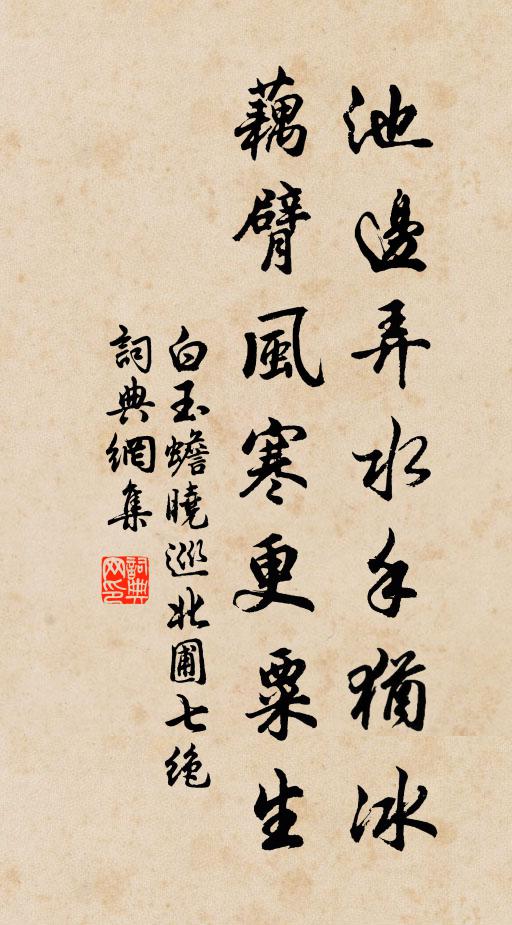 池邊弄水手猶冰
藕臂風寒更粟生
白玉蟾曉巡北圃七绝
詞典網集
詞典网印